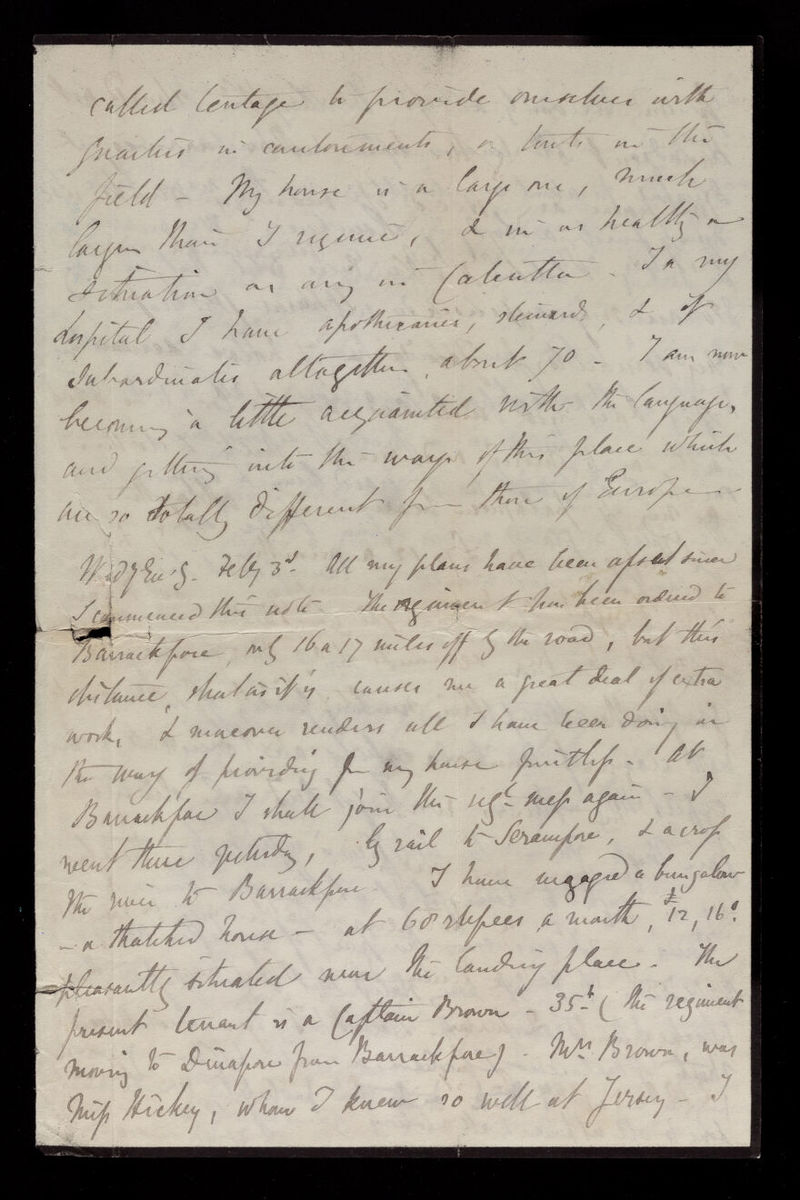 called tentage to provide ourselves with
quarters in cantonments, or tents in the
field - My house is a large one, much
larger than I require, & in as healthy a
situation as any in Calcutta. In my
hospital I have apothecaries, stewards, & of
subordinates altogether about 70 - I am now
becoming a little acquainted with the language,
and getting into the ways of this place which
are so totally different from those of Europe -
Wedy Eve'g. Feby 3d. All my plans have been upset since
I commenced this note. The regiment has been ordered to
Barrackpore, only 16 or 17 miles off by the road, but this
distance, short as it is, causes me a great deal of extra
work, & moreover renders all I have been doing in
the way of providing for my house fruitless - At
Barrackpore I shall join the regtl. mess again - I
went there yesterday, by rail to Serampore, & across
the river to Barrackpore. I have engaged a bungalow
- a thatched house - at 68 rupees a month, £12, 16s.
pleasantly situated near the landing place. The
present tenant is a Captain Brown - 35th (the regiment
moving to Dinapore from Barrackpore). Mrs. Brown, was
Miss Hickey, whom I knew so well at Jersey - I